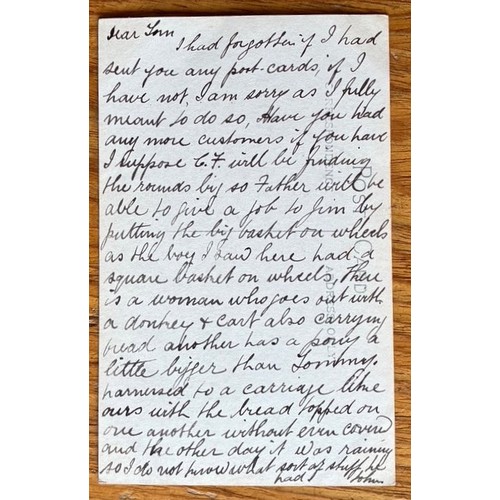 Dear Tom
I had forgotten if I had
sent you any post cards, if I
have not, I am sorry as I fully
meant to do so, Have you had
any more customers if you have
I suppose C.F. will be finding
the rounds big so Father will be
able to give a job to Jim by
putting the big basket on wheels
as the boy I saw here had a
square basket on wheels, There
is a woman who goes out with
a donkey & cart also carrying
bread another has a pony a
little bigger than Tommy.
harnessed to a carriage like
ours with the bread topped on
one another without even cover
and the other day it was raining
so I do not know what sort of stuff he
had John
POST CARD
ADDRESS ONLY